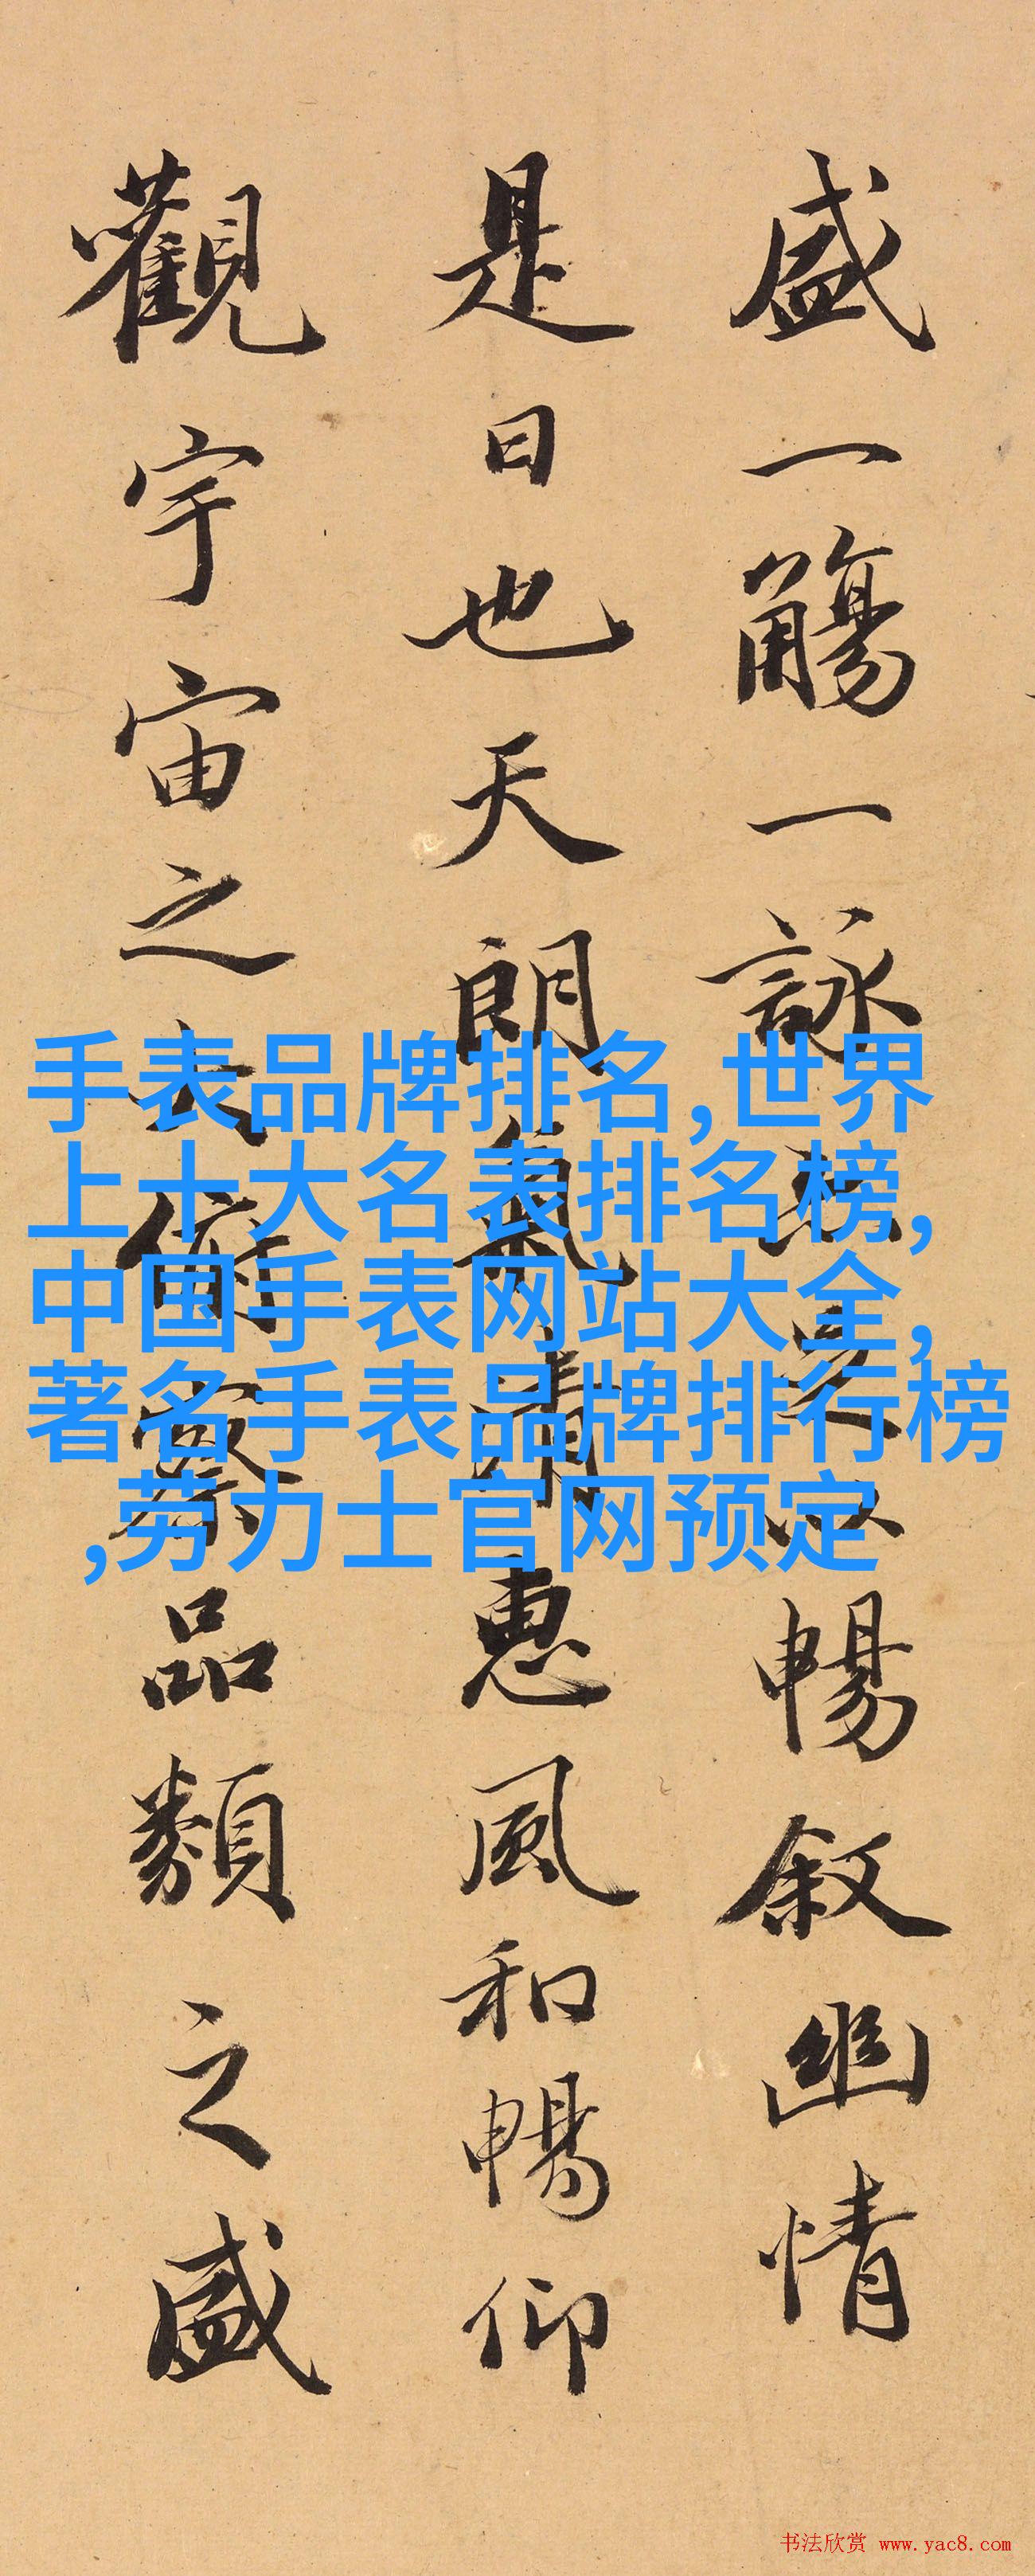 盛一觴一詠亦足以暢叙幽情
是日也天朗氣清惠風和暢仰
觀宇宙之大俯察品類之盛
手表品牌排名,世界
上十大名表排名榜,
中国手表网站大全,
著名手表品牌排行榜
,劳力士官网预定
书法欣赏 www.yac8.com